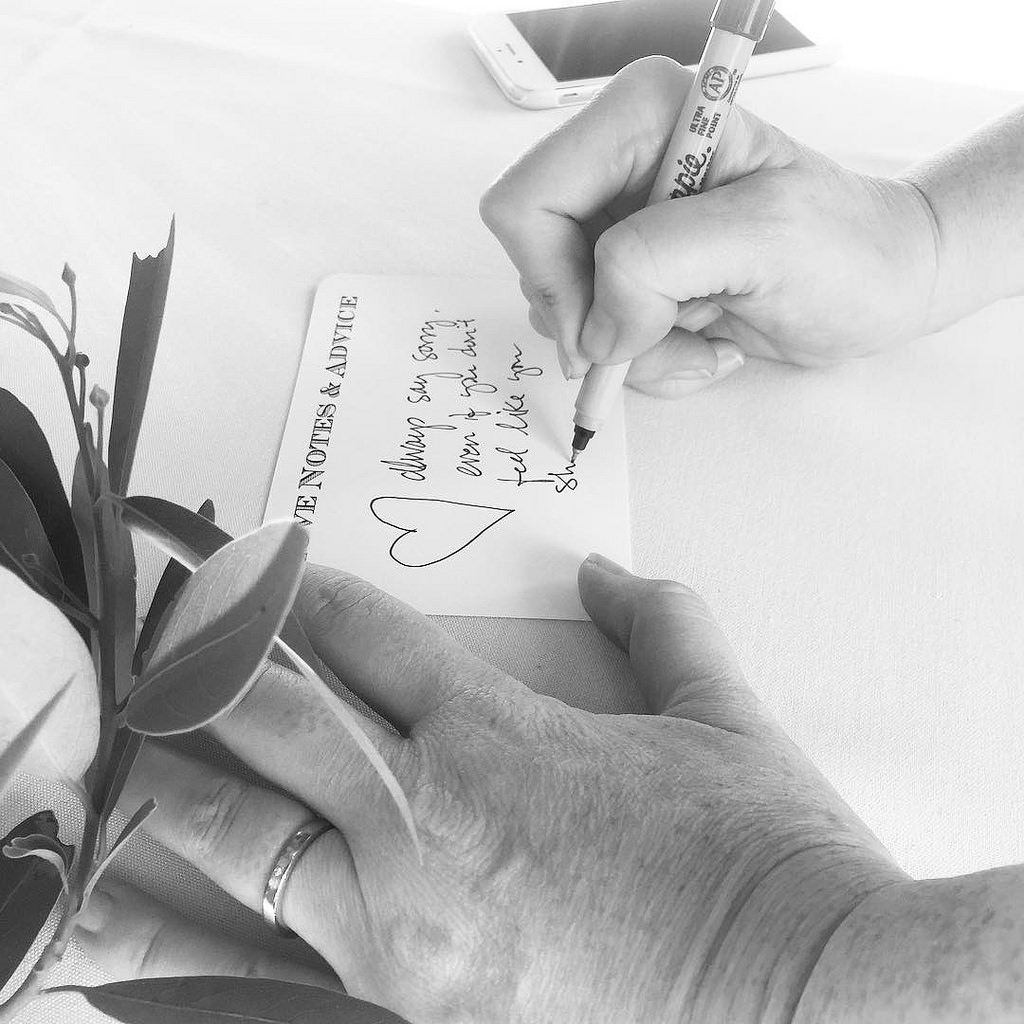 VE NOTES & ADVICE
always say sorry,
even if you don't
feel like you
sh
ppie.
ULTRA
FINE
POINT
AP